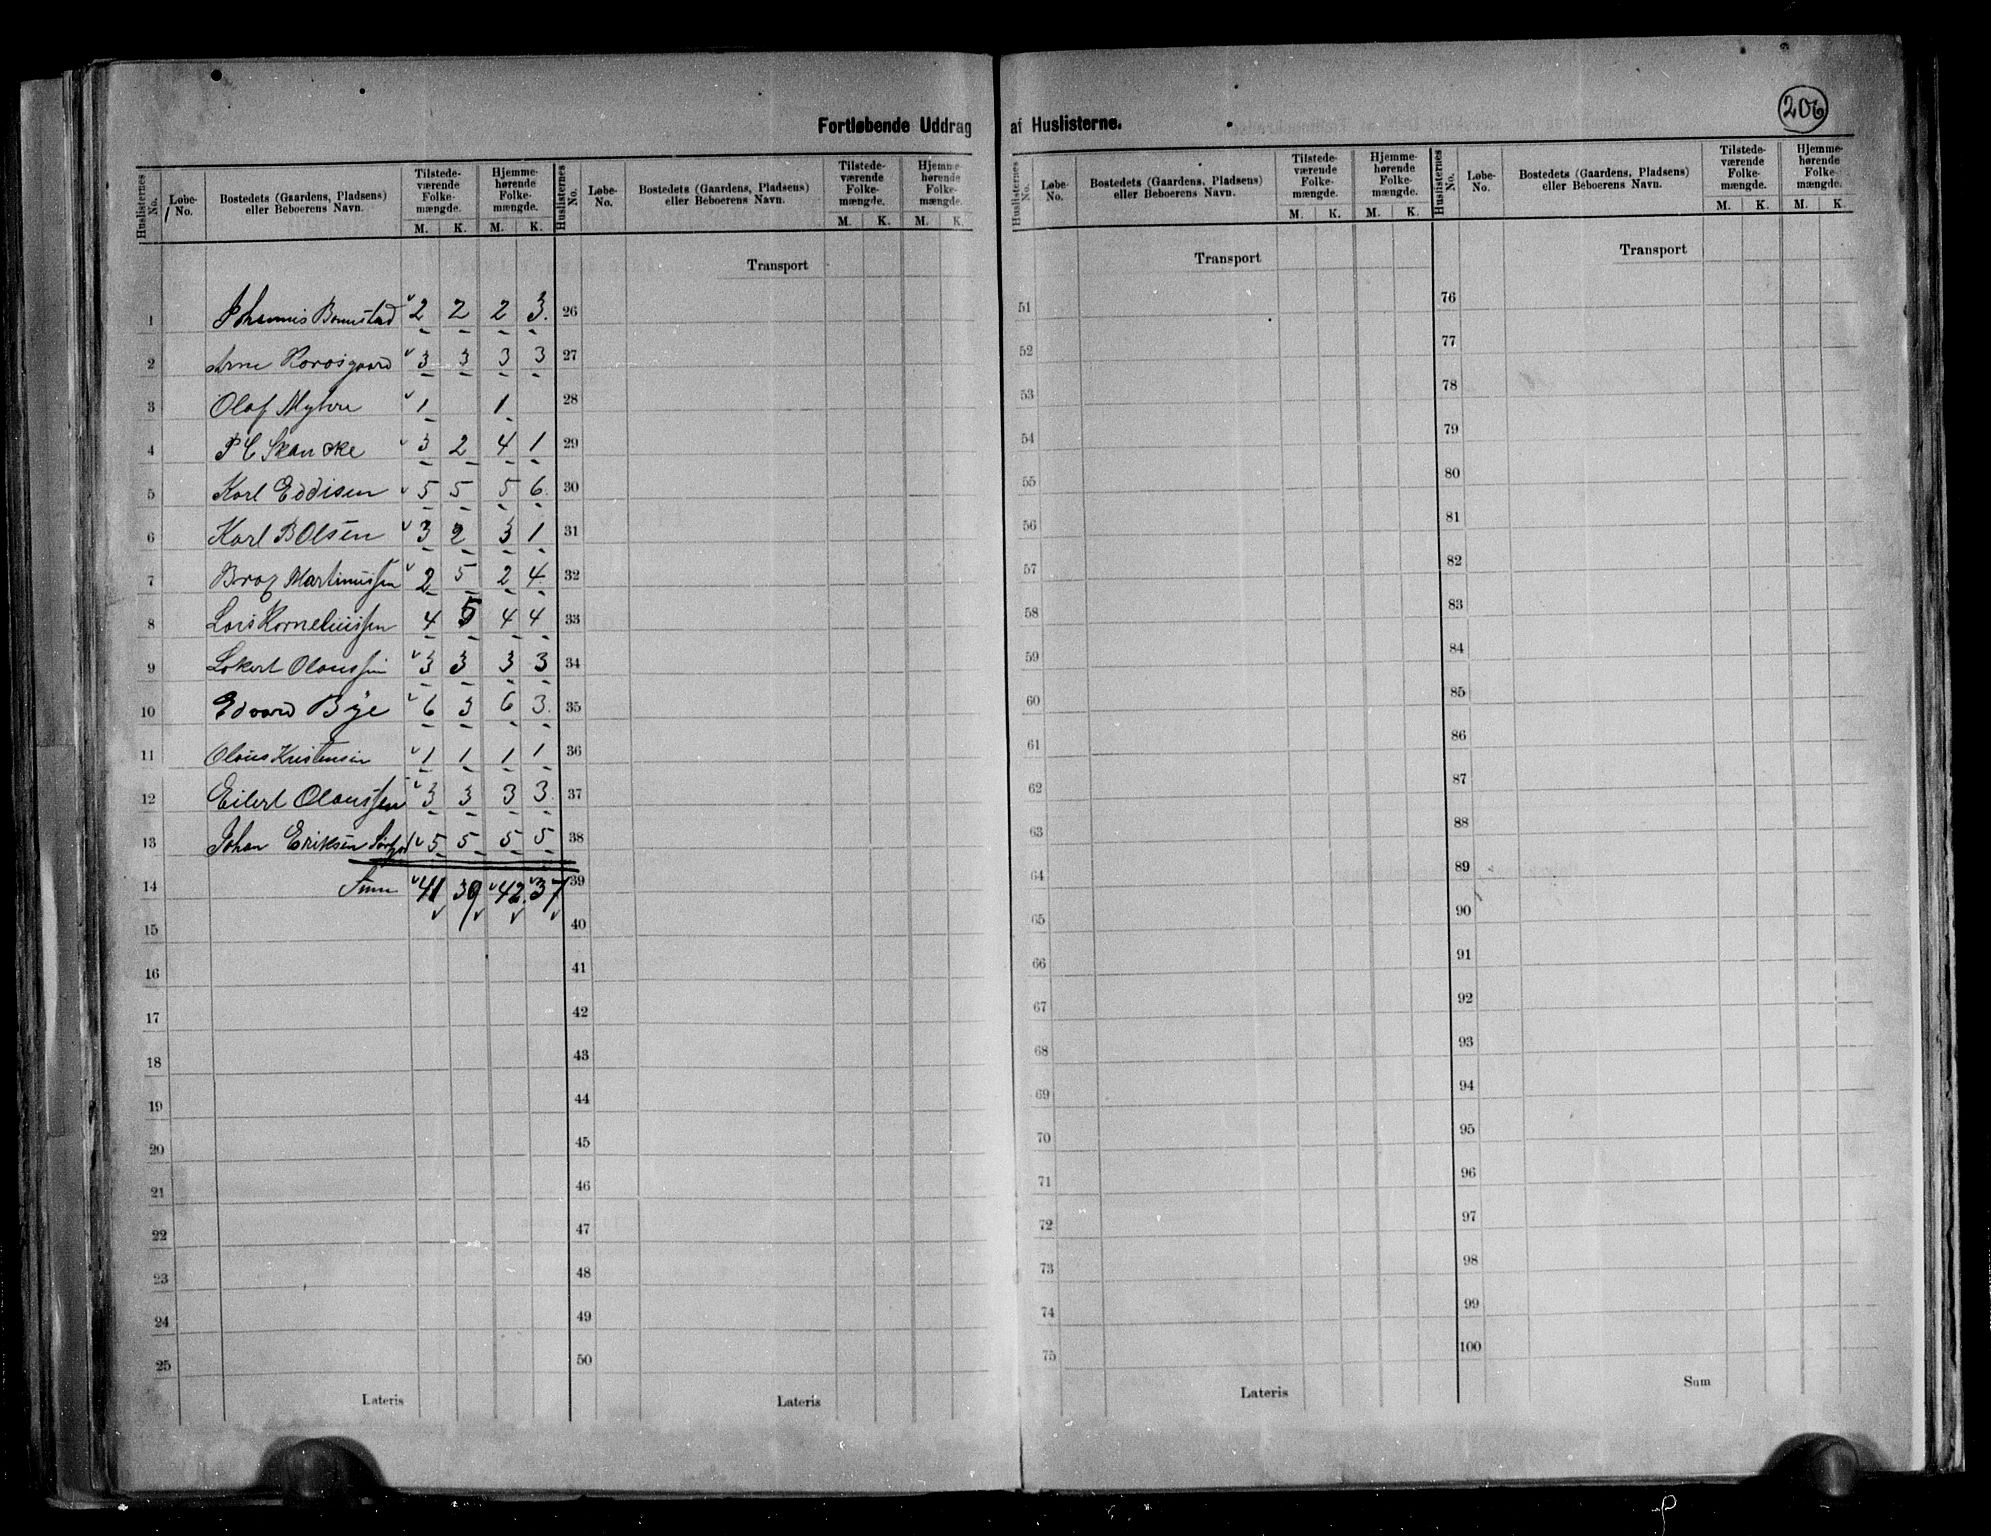 206
Fortløbende Uddrag af Huslisterne.
Huslisternes No. Løbe-No. Bostedets (Gaardens, Pladsens) eller Beboerens Navn. Tilstedeværende Folkemængde. M. K. Hjemmehørende Folkemængde. M. K.
Huslisternes No. Løbe-No. Bostedets (Gaardens, Pladsens) eller Beboerens Navn. Tilstedeværende Folkemængde. M. K. Hjemmehørende Folkemængde. M. K.
Huslisternes No. Løbe-No. Bostedets (Gaardens, Pladsens) eller Beboerens Navn. Tilstedeværende Folkemængde. M. K. Hjemmehørende Folkemængde. M. K.
Huslisternes No. Løbe-No. Bostedets (Gaardens, Pladsens) eller Beboerens Navn. Tilstedeværende Folkemængde. M. K. Hjemmehørende Folkemængde. M. K.
1 Johannis 2 2 2 3.
2 Arne 3 3 3 3
3 Olaf Myhre 1 1
4 P C Skancke 3 2 4 1
5 Karl Eddisen 5 5 5 6.
6 Karl B Olsen 3 2 3 1
7 Martinussen 2 5 2 4.
8 Korneliussen 4 5 4 4
9 Olaussen 3 3 3 3
10 Edvard Bye 6 3 6 3.
11 Olaus Kristensen 1 1 1 1
12 Eilert Olaussen 3 3 3 3
13 Johan Eriksen 5 5 5 5
14 41 39 42. 37
15
16
17
18
19
20
21
22
23
24
25
Lateris
Transport
26
27
28
29
30
31
32
33
34
35
36
37
38
39
40
41
42
43
44
45
46
47
48
49
50
Lateris
Transport
51
52
53
54
55
56
57
58
59
60
61
62
63
64
65
66
67
68
69
70
71
72
73
74
75
Lateris
Transport
76
77
78
79
80
81
82
83
84
85
86
87
88
89
90
91
92
93
94
95
96
97
98
99
100
Sum